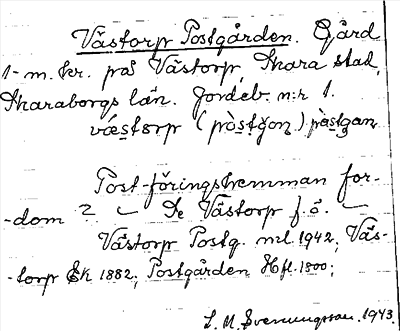 Västorp Postgården. Gård
1-m. kr. på Västorp, Skara stad,
Skaraborgs län. Jordeb. n:r 1.
væstɔrp (pòstg̊on) pàstgan
Post-föringshemman for-
-dom ? – Se Västorp f. ö. –
Västorp Postg. ml. 1942, Väs-
-torp Ek 1882, Postgården Hfl. 1800;
S. M. Svenungsson. 1943.